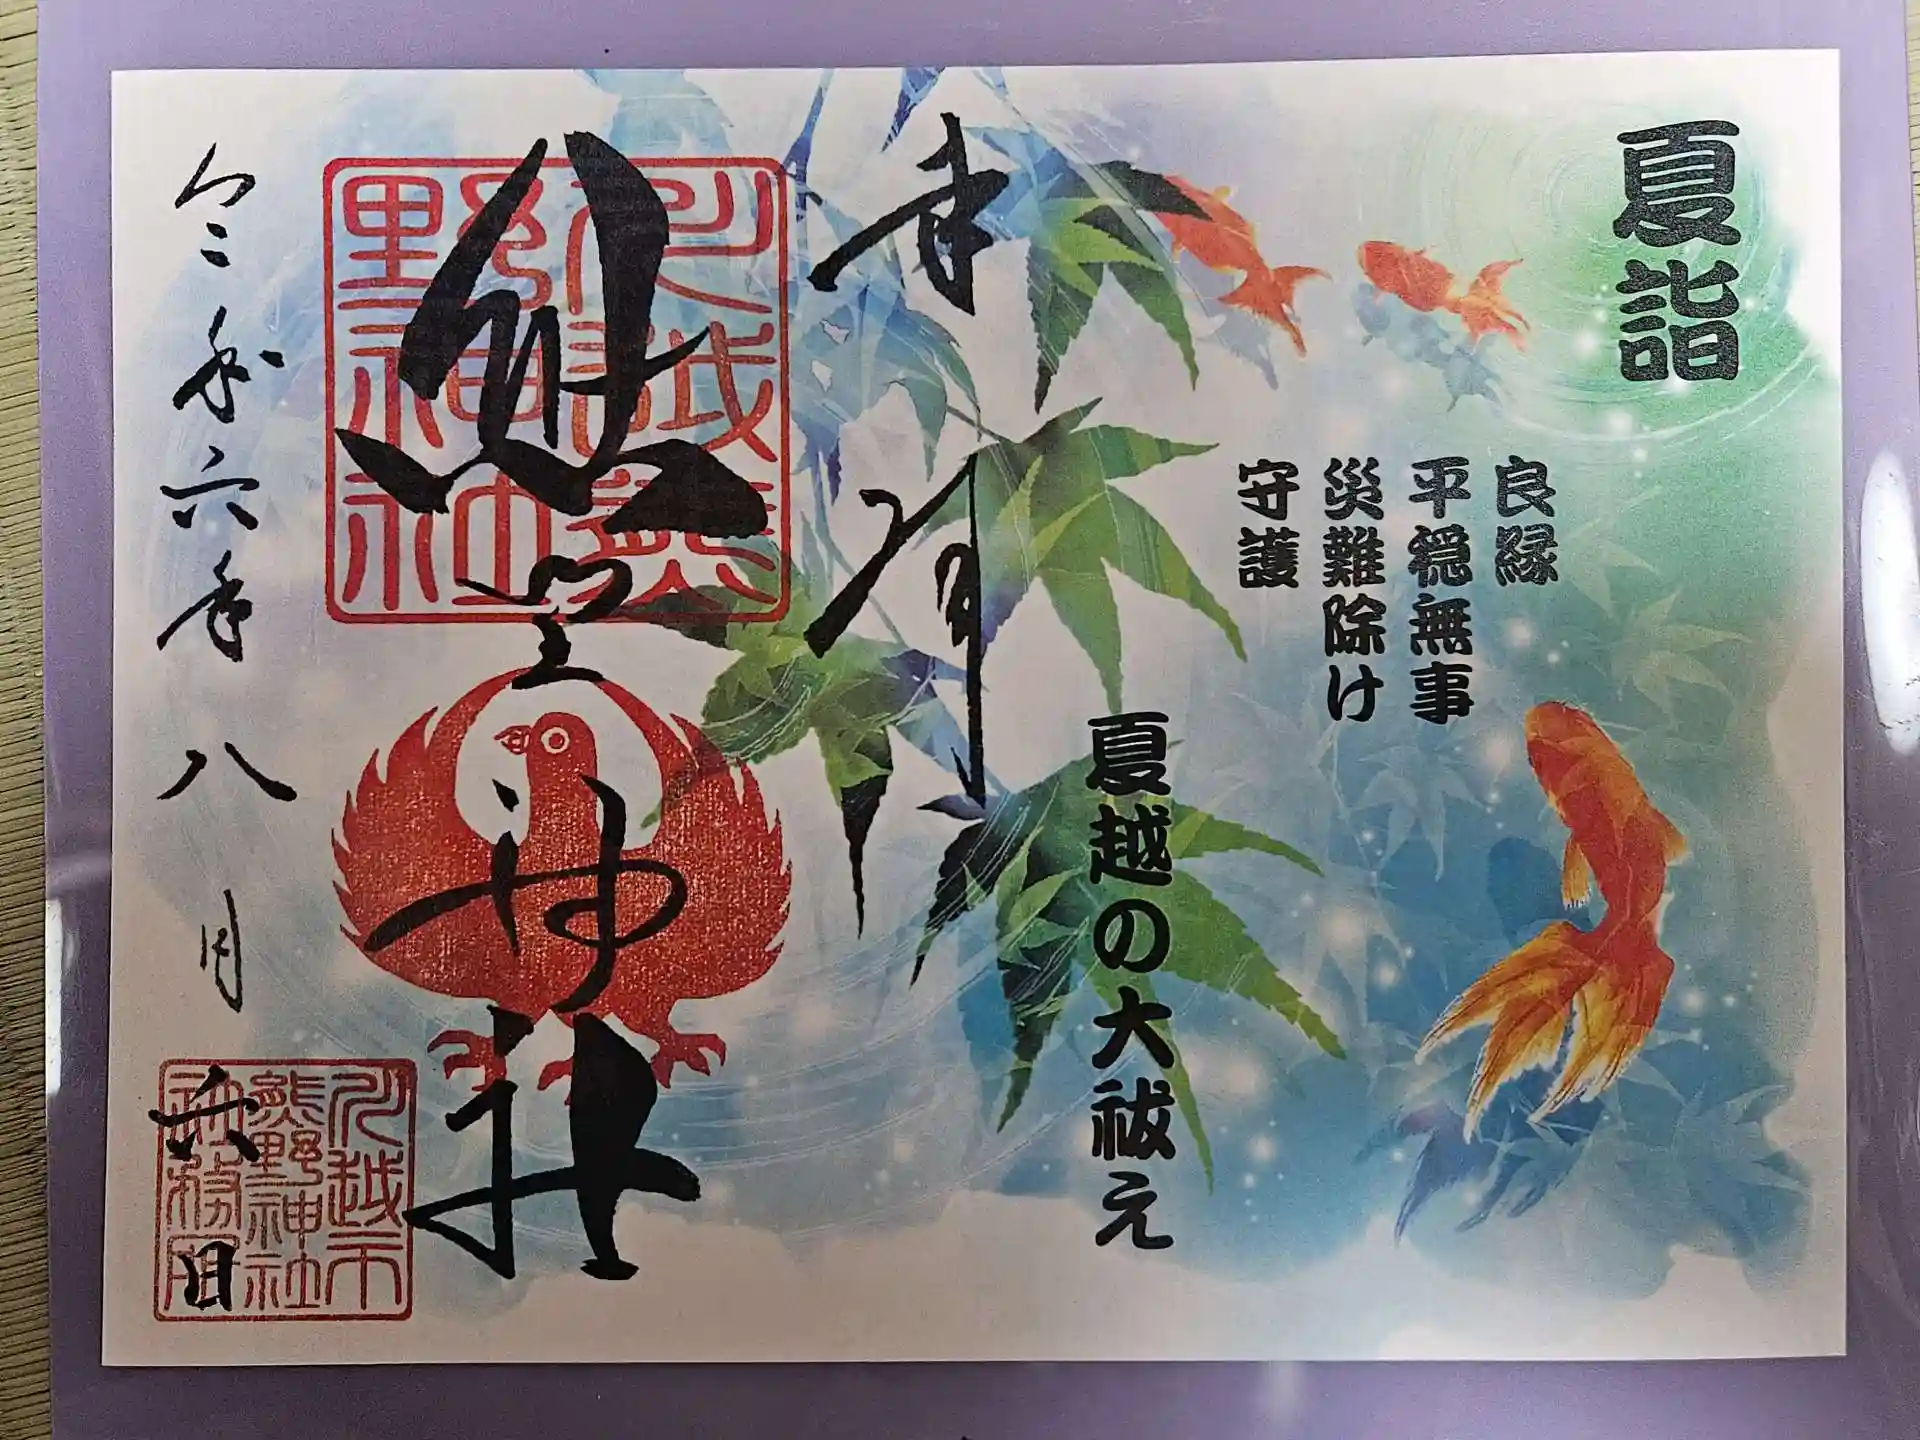 夏詣
良縁
平穏無事
災難除け
守護
夏越の大祓え
奉拝
川越熊
野神社
熊野神社
令和六年八月六日
川越市
熊野神社
社務所